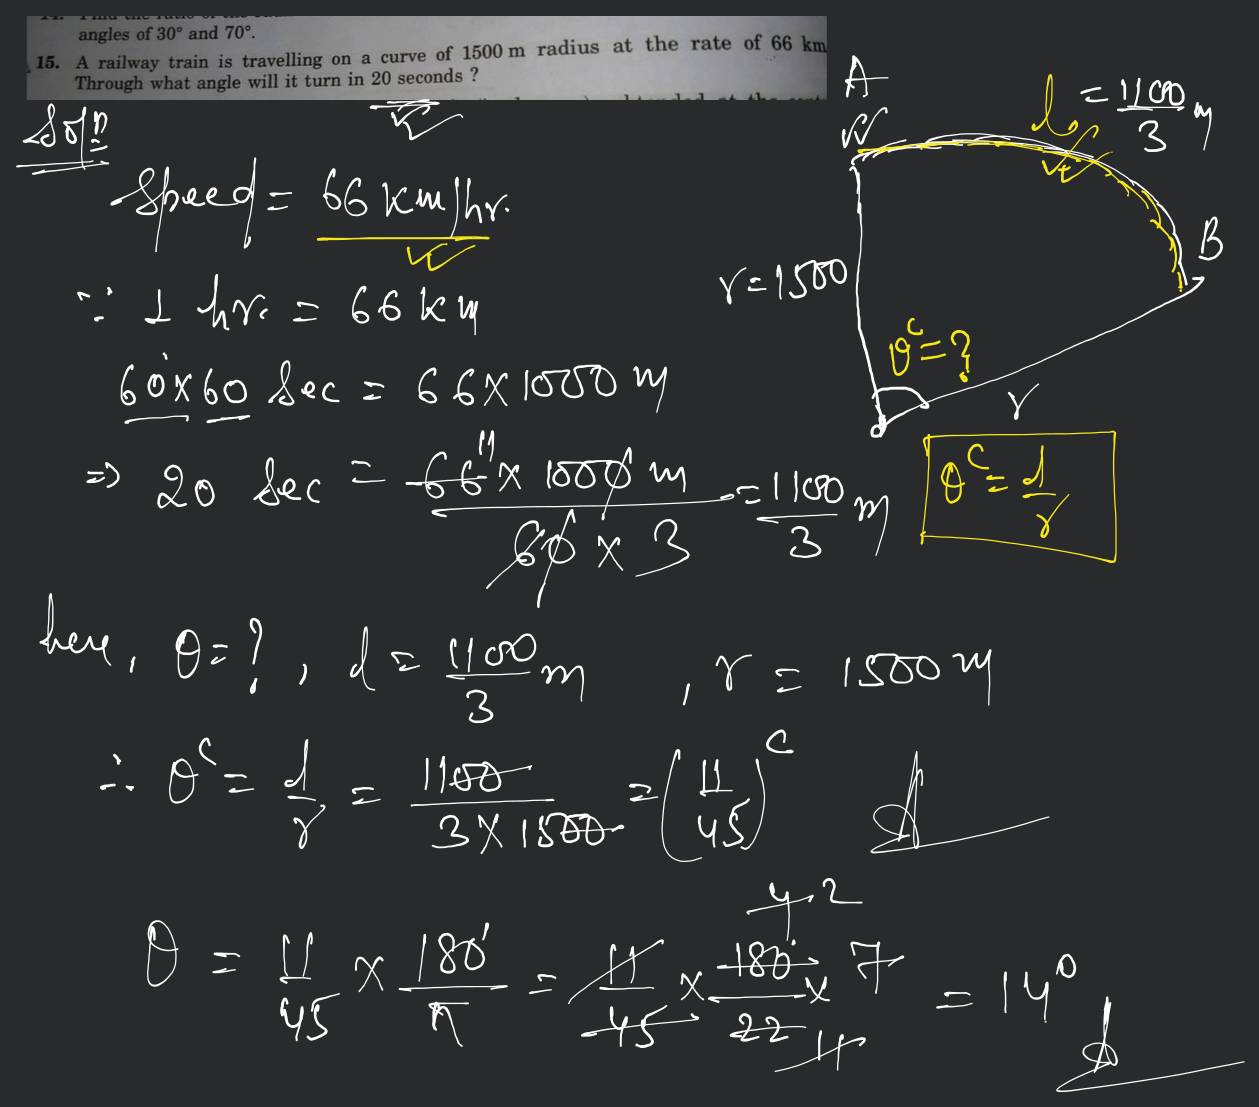 angles of 30° and 70°.
15. A railway train is travelling on a curve of 1500 m radius at the rate of 66 km
Through what angle will it turn in 20 seconds ?
Solⁿ
Speed = 66 km/hr.
∵ 1 hr. = 66 km
60×60 Sec = 66×1000 m
⇒ 20 Sec = 66 × 1000 m / 60 × 3 = 1100/3 m
11
A
l = 1100/3 m
B
r=1500
θᶜ=?
r
O
θᶜ = d/r
here, θ=?, d = 1100/3 m , r = 1500 m
∴ θᶜ = d/r = 1100 / 3×1500 = (11/45)ᶜ
θ = 11/45 × 180/π = 11/45 × 180/22 × 7 = 14°
4 2
11